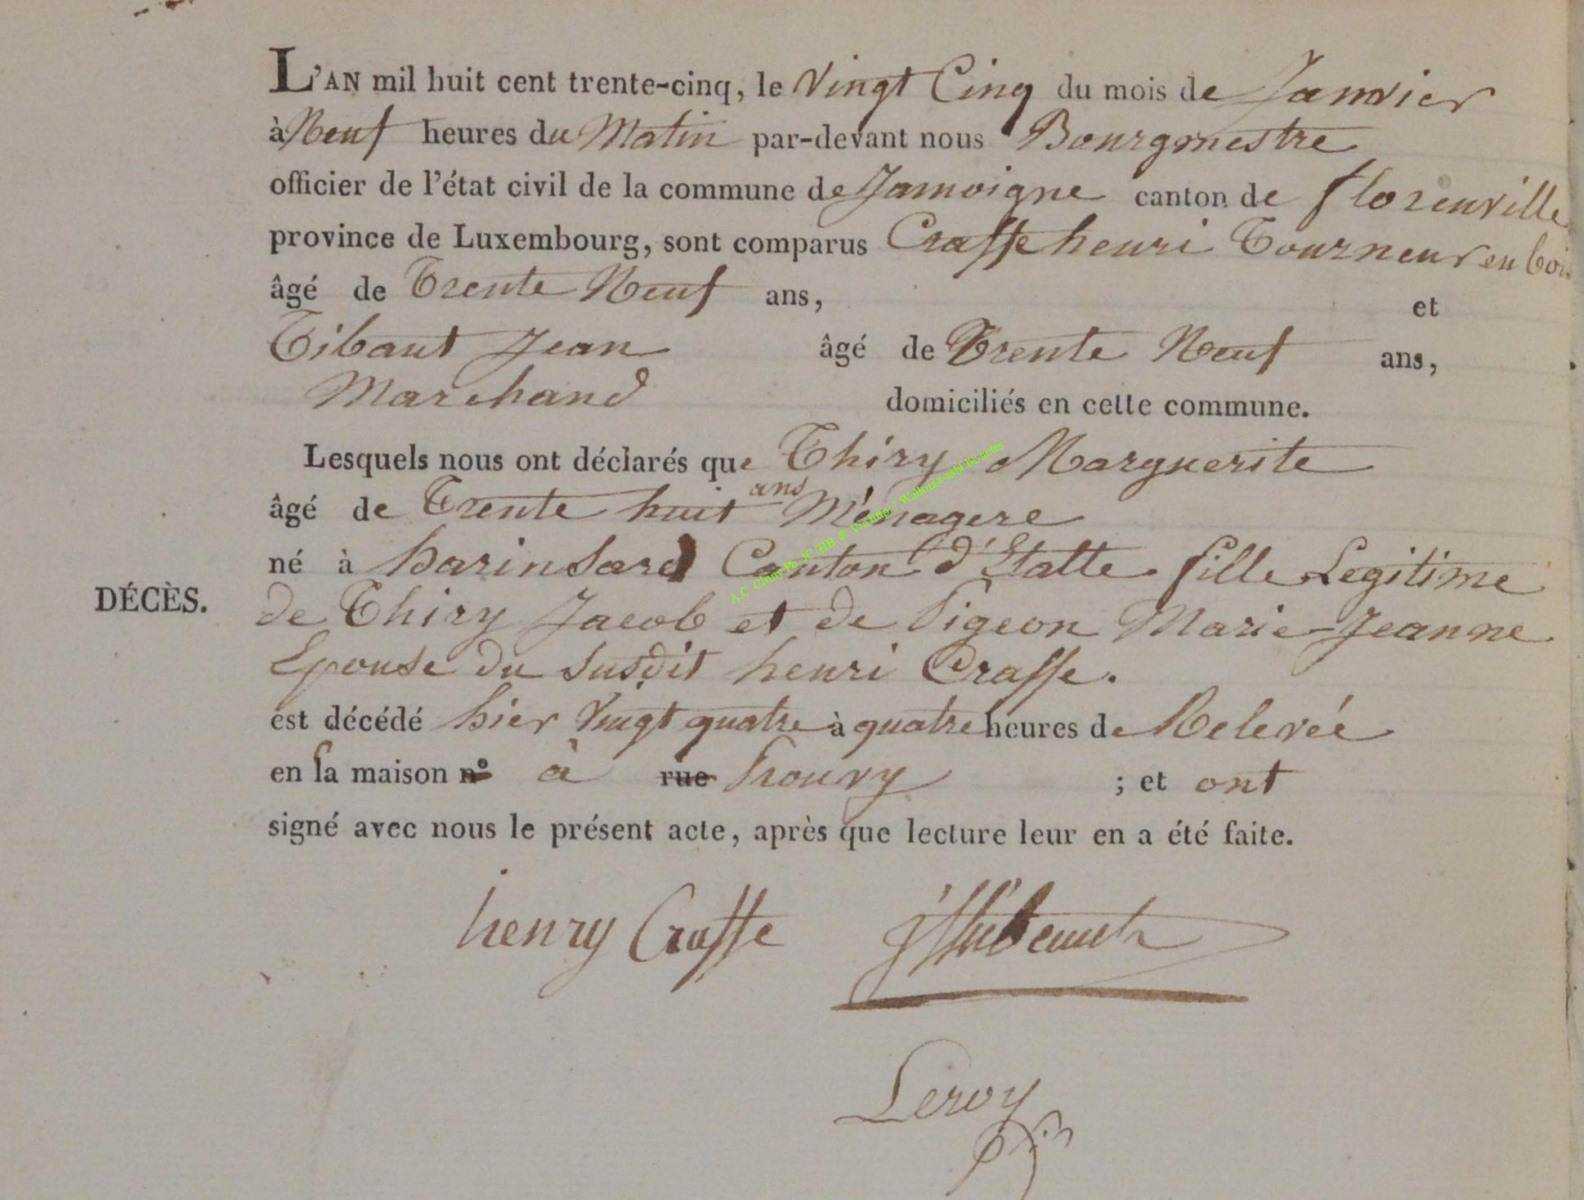 L'AN mil huit cent trente-cinq, le Vingt Cinq du mois de Janvier
à Neuf heures du Matin par-devant nous Bourgmestre
officier de l'état civil de la commune de Jamoigne canton de florenville
province de Luxembourg, sont comparus Crasse henri Tourneur en bois
âgé de Trente Neuf ans, et
Tibaut Jean âgé de Trente Neuf ans,
Marchand domiciliés en cette commune.
Lesquels nous ont déclarés que Thiry Marguerite
âgé de Trente huit ans Ménagere
né à harinsard Canton d'Etalle fille Legitime
DÉCÈS.
de Thiry Jacob et de Pigeon Marie-Jeanne
Epouse du susdit henri Crasse.
est décédé hier Vingt quatre à quatre heures de Relevée
en la maison n° à rue Prouvy ; et ont
signé avec nous le présent acte, après que lecture leur en a été faite.
henry Crasse
Leroy